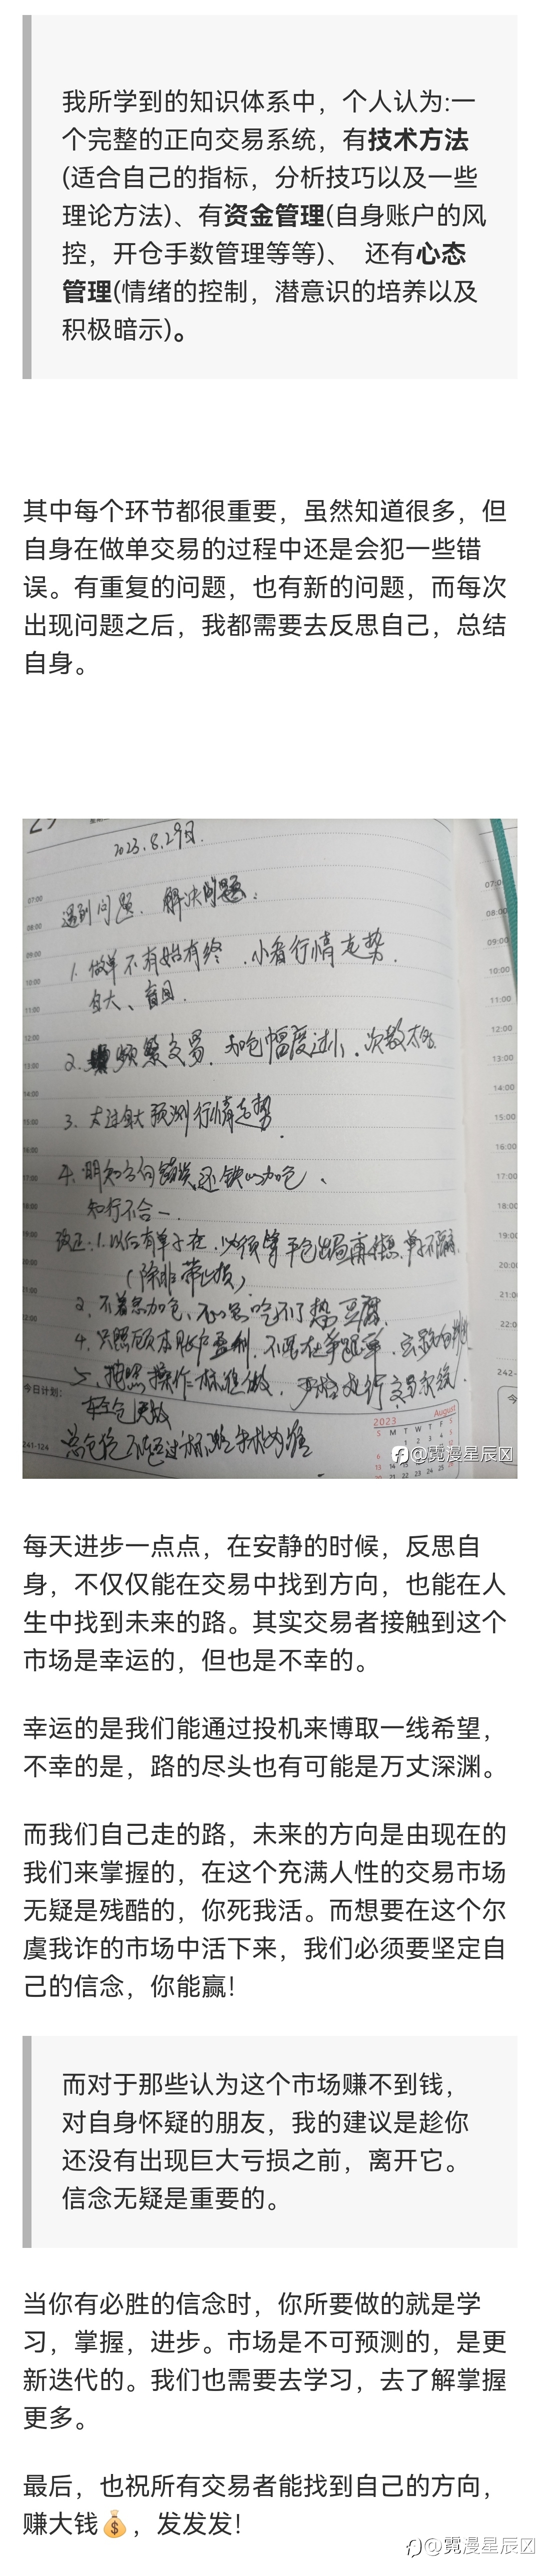 我所学到的知识体系中，个人认为:一
个完整的正向交易系统，有技术方法
(适合自己的指标，分析技巧以及一些
理论方法)、有资金管理(自身账户的风
控，开仓手数管理等等)、 还有心态
管理(情绪的控制，潜意识的培养以及
积极暗示)。
其中每个环节都很重要，虽然知道很多，但
自身在做单交易的过程中还是会犯一些错
误。有重复的问题，也有新的问题，而每次
出现问题之后，我都需要去反思自己，总结
自身。
2023.8.29日.
遇到问题. 解决问题:
1. 做单不有始有终.小看行情走势.
自大、盲目.
2. 频繁交易. 加仓幅度过小.次数太多.
3. 太过自大预测行情走势.
4. 明知方向错误还铁心加仓、
知行不合一.
改正:1.以后有单子在.必须等平仓出局再休息.单子不隔夜.
(除非带止损)
2. 不着急加仓、
4. 只照顾本账户盈利.
5. 按照操作 做. 严格执行交易系统.
07:00
08:00
09:00
10:00
11:00
12:00
13:00
14:00
15:00
16:00
17:00
18:00
19:00
20:00
21:00
22:00
今日计划:
241-124
2023 August
S M T W T F S
242-
@霓漫星辰
每天进步一点点，在安静的时候，反思自
身，不仅仅能在交易中找到方向，也能在人
生中找到未来的路。其实交易者接触到这个
市场是幸运的，但也是不幸的。
幸运的是我们能通过投机来博取一线希望，
不幸的是，路的尽头也有可能是万丈深渊。
而我们自己走的路，未来的方向是由现在的
我们来掌握的，在这个充满人性的交易市场
无疑是残酷的，你死我活。而想要在这个尔
虞我诈的市场中活下来，我们必须要坚定自
己的信念，你能赢!
而对于那些认为这个市场赚不到钱，
对自身怀疑的朋友，我的建议是趁你
还没有出现巨大亏损之前，离开它。
信念无疑是重要的。
当你有必胜的信念时，你所要做的就是学
习，掌握，进步。市场是不可预测的，是更
新迭代的。我们也需要去学习，去了解掌握
更多。
最后，也祝所有交易者能找到自己的方向，
赚大钱💰，发发发!
@霓漫星辰